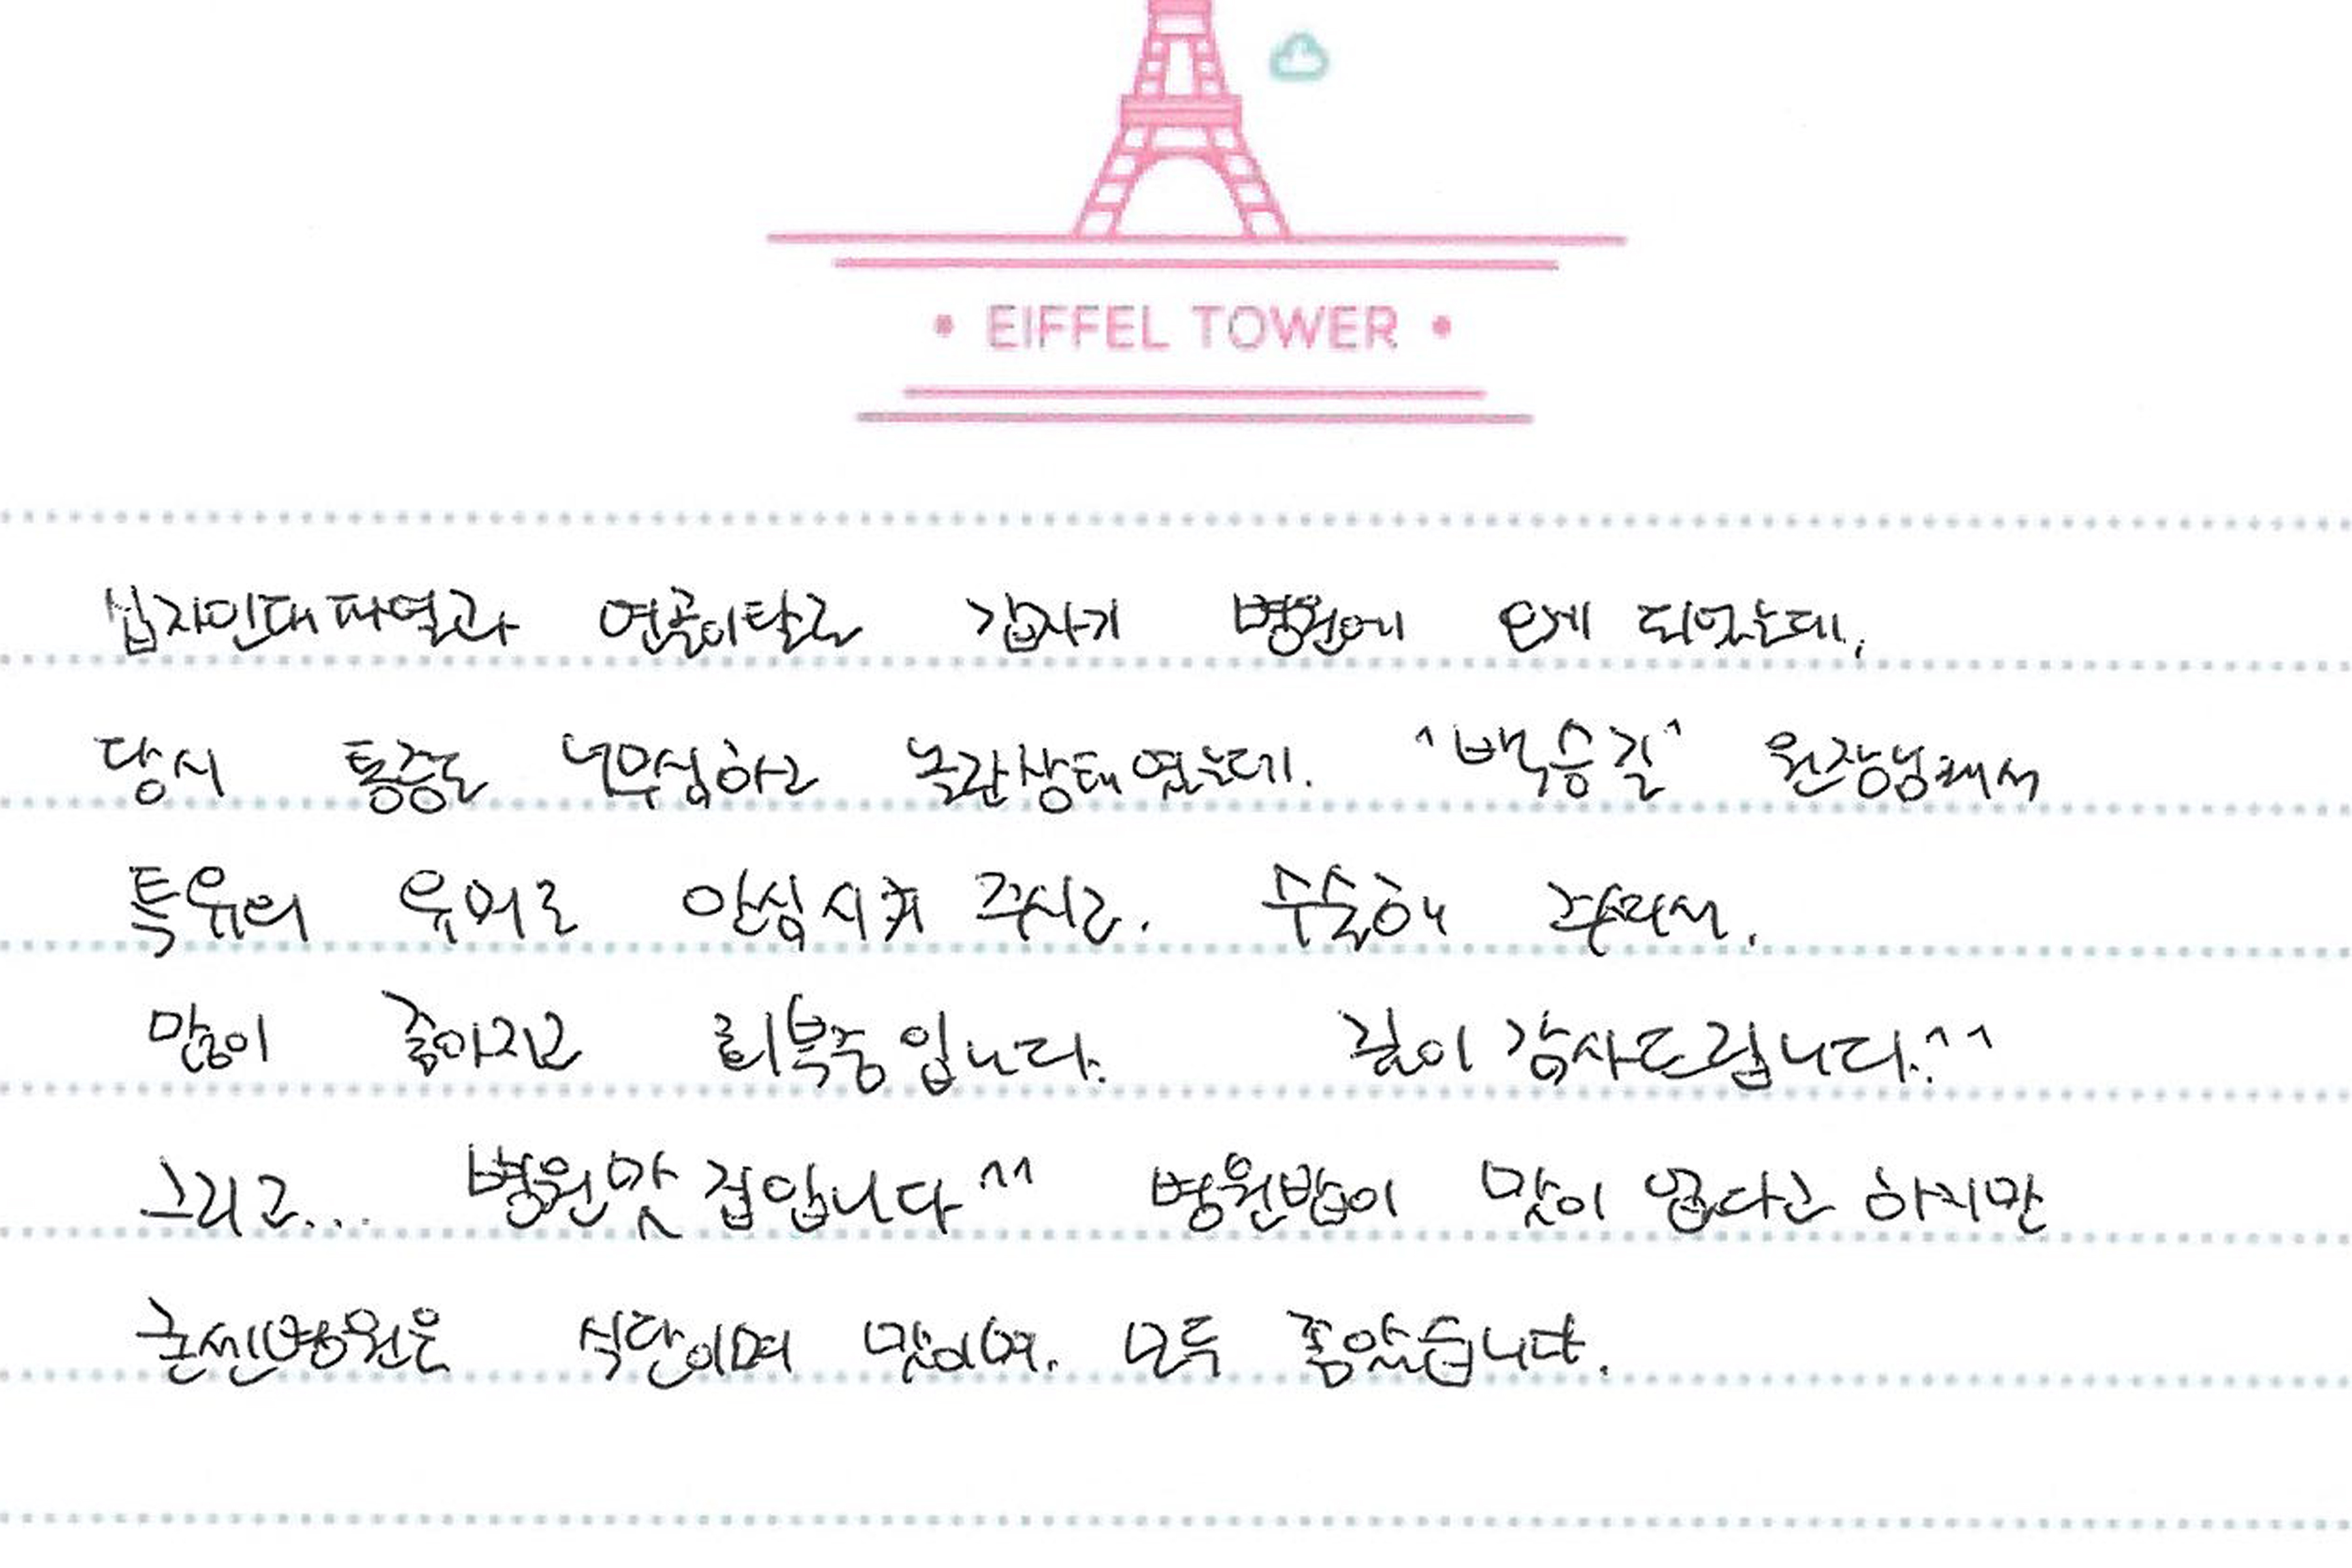 EIFFEL TOWER
십자인대파열과 연골이탈로 갑자기 병원에 오게 되었는데,
당시 통증도 너무심하고 놀란상태였는데. "백승길" 원장님께서
특유의 유머로 안심시켜 주시고. 수술해 주셔서.
많이 좋아지고 회복중입니다. 깊이 감사드립니다.^^
그리고... 병원맛집입니다^^ 병원밥이 맛이 없다고 하지만
굳센병원은 식단이며 맛이며. 모두 좋았습니다.